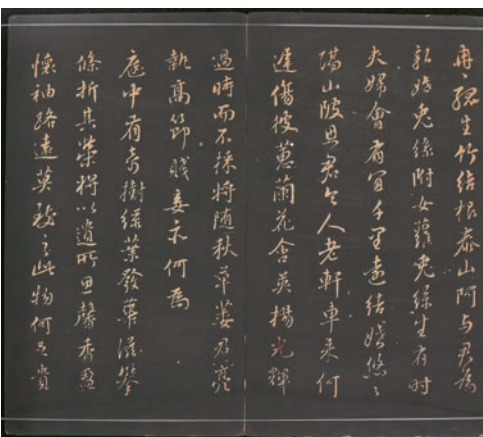 冉〻孤生竹結根泰山阿与君為
新婚兔絲附女蘿兔絲生有時
夫婦會有宜千里遠結婚悠〻
隔山陂思君令人老軒車来何
遲傷彼蕙蘭花含英揚光輝
過時而不採将随秋草萎君亮
執高節賤妾亦何為
庭中有奇樹緑葉發華滋攀
條折其榮将以遺所思馨香盈
懷袖路遠莫致之此物何足貴